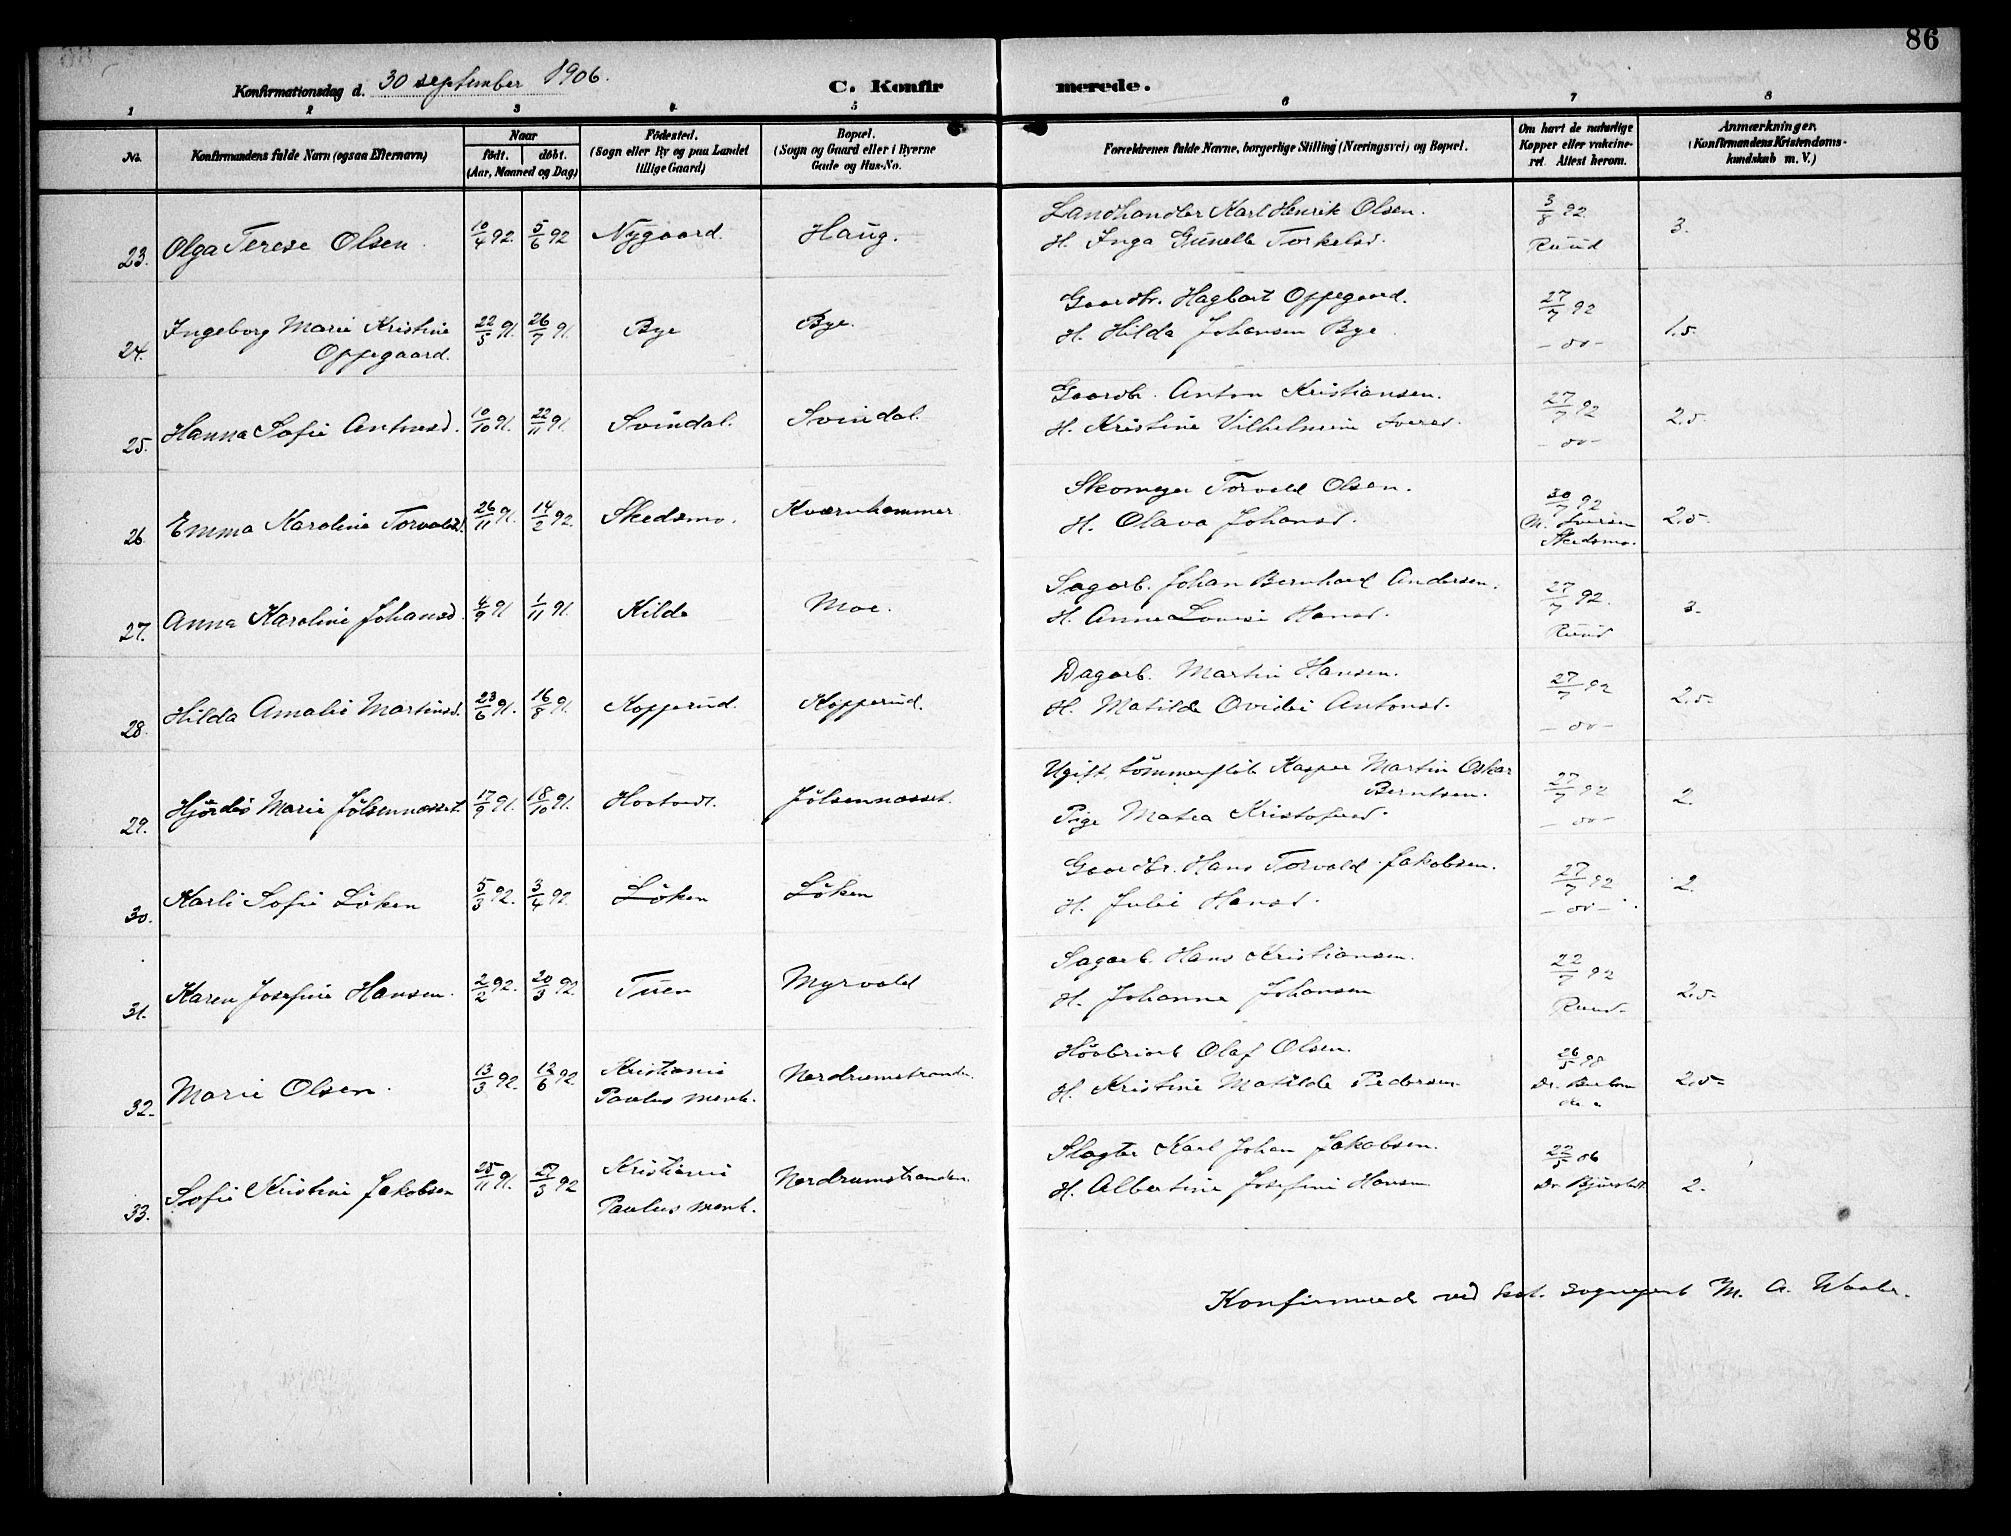 86
Konfirmationsdag d. 30 september 1906.
C. Konfirmerede.
1 2 3 4 5 6 7 8
No.
Konfirmandens fulde Navn (ogsaa Efternavn)
Naar
født. døbt.
(Aar, Maaned og Dag)
Fødested.
(Sogn eller By og paa Landet
tillige Gaard)
Bopæl.
(Sogn og Gaard eller i Byerne
Gade og Hus-No.
Forældrenes fulde Navne, borgerlige Stilling (Næringsvei) og Bopæl.
Om havt de naturlige
Kopper eller vakcine-
ret. Attest herom.
Anmærkninger.
(Konfirmandens Kristendoms-
kundskab m. V.)
23. Olga Terese Olsen. 10/4 92. 5/6 92 Nygaard. Haug. Landhandler Karl Henrik Olsen. 3/8 92. 3.
H. Inga Gunelle Torkelsd. Ruud
24. Ingeborg Marie Kristine 22/5 91. 26/7 91. Bye Bye. Gaardbr. Hagbart Oppegaard. 27/7 92 1.5.
Oppegaard. H. Hilda Johansen Bye. - do -
25. Hanna Sofie Antonsd. 10/10 91. 22/11 91. Svindal. Svindal. Gaardbr. Anton Kristiansen. 27/7 92 2.5.
H. Kristine Vilhelmine Iversd. - do -
26. Emma Karoline Torvaldsd. 26/11 91. 14/2 92. Skedsmo. Kværnhammer. Skomager Torvald Olsen. 30/7 92 2.5.
H. Olava Johansd. M. Iversen
Skedsmo.
27. Anna Karoline Johansd. 4/9 91 1/11 91. Kilde Moe. Sagarb. Johan Bernhard Andersen. 27/7 92. 3.
H. Anne Lovise Hansd. Ruud
28. Hilda Amalie Martinsd. 23/6 91. 16/8 91. Kopperud. Kopperud. Dagarb. Martin Hansen. 27/7 92 2.5.
H. Matilde Ovidie Antonsd. - do -
29. Hjördis Marie Jølsennæsset. 17/9 91. 18/10 91. Jølsennæsset. Ugift, tömmerfløt. Kasper Martin Oskar 27/7 92 2.
Berntsen.
Pige Matea Kristofersd. - do -
30. Karli Sofie Löken 5/3 92. 3/4 92. Löken Löken Gaardbr. Hans Torvald Jakobsen. 27/7 92 2.
H. Julie Hansd. - do -
31. Karen Josefine Hansen. 2/2 92. 20/3 92. Tuen Myrvold Sagarb. Hans Kristiansen. 22/7 92 2.5.
H. Johanne Johansen Ruud.
32. Marie Olsen. 13/3 92. 12/6 92. Kristiania Nordrumstranden Olaf Olsen. 26/5 98 2.5.
Paulus menh. H. Kristine Matilde Pedersen. Dr.
33. Sofie Kristine Jakobsen 25/11 91. 27/3 92 Kristiania Nordrumstranden. Slagter Karl Johan Jakobsen. 22/5 06 2.
Paulus menh. H. Albertine Josefine Hansen Dr.
Konfirmerede ved sogneprest M. A. Waale.